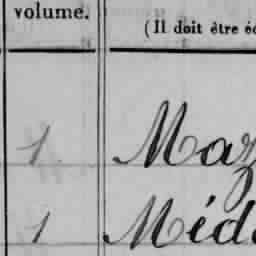 volume.
(Il doit être éc
1 Maz
1 Méd